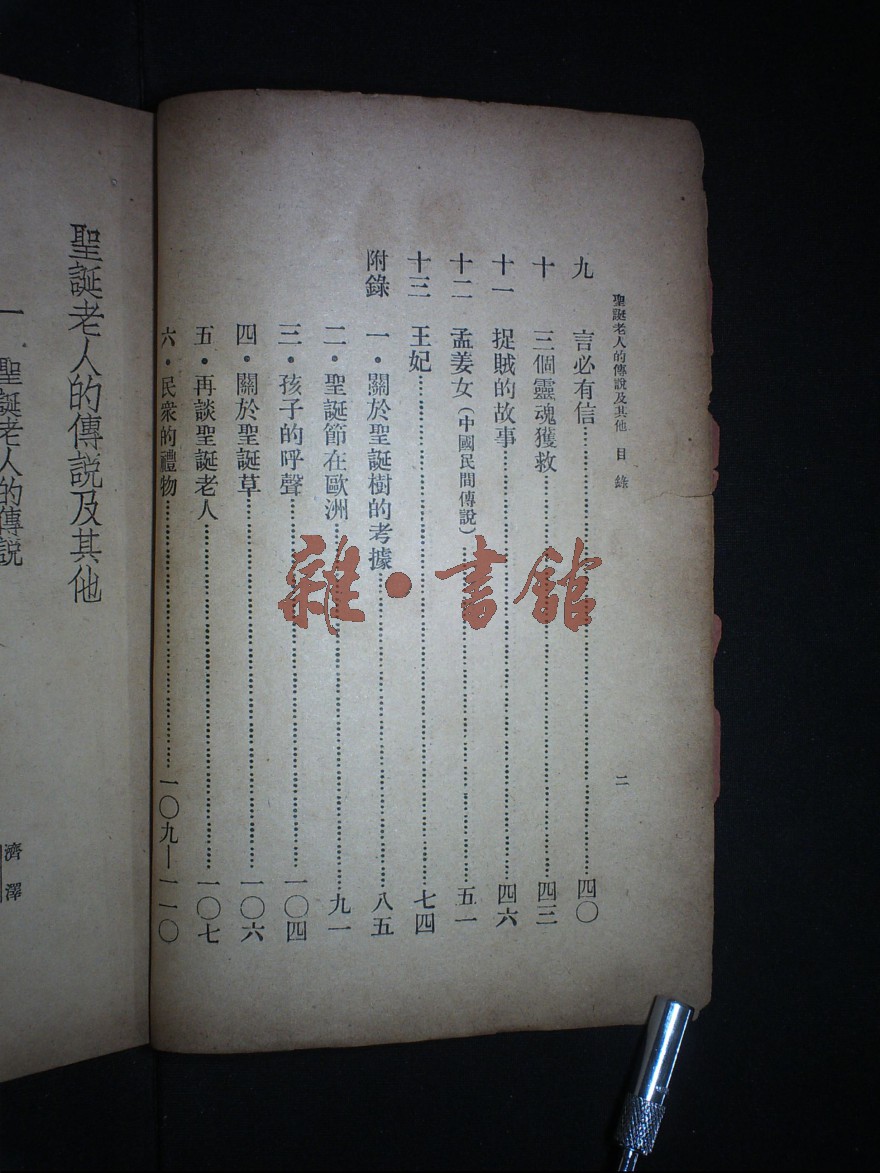 聖誕老人的傳說及其他　目錄
二
九　言必有信……四〇
十　三個靈魂獲救……四三
十一　捉賊的故事……四六
十二　孟姜女（中國民間傳說）……五一
十三　王妃……七四
附錄　一•關於聖誕樹的考據……八五
二•聖誕節在歐洲……九一
三•孩子的呼聲……一〇四
四•關於聖誕草……一〇六
五•再談聖誕老人……一〇七
六•民衆的禮物……一〇九—一一〇
聖誕老人的傳說及其他
一　聖誕老人的傳說
濟澤
雜•書館